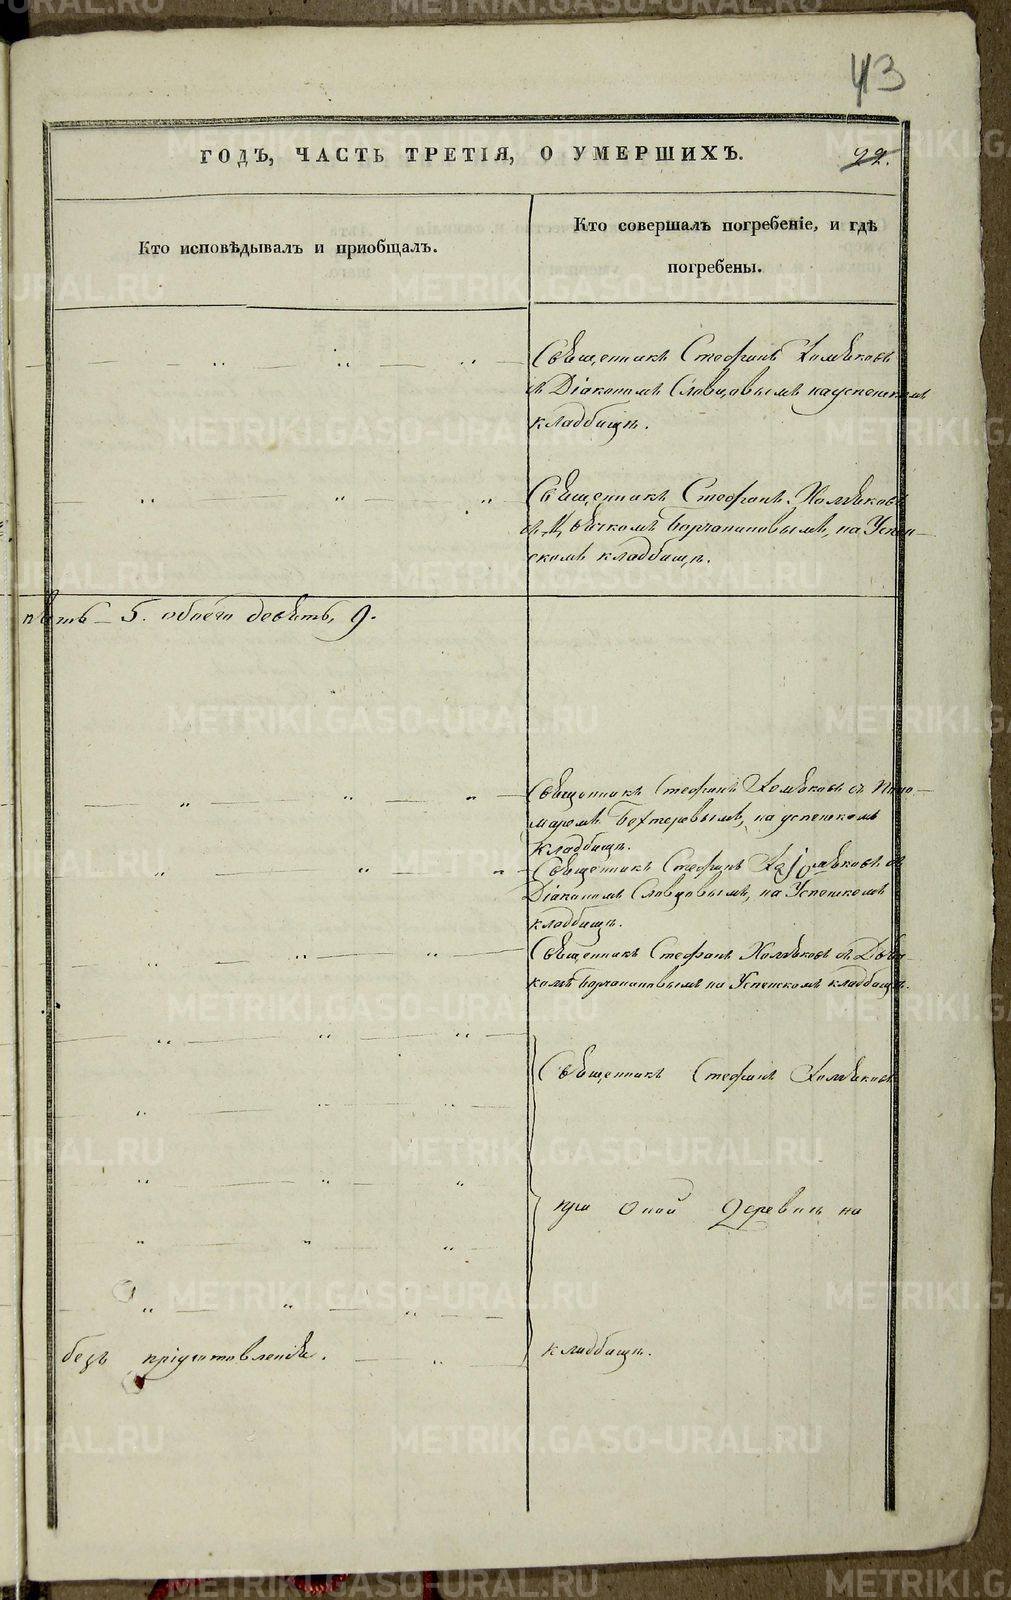 43
ГОДЪ, ЧАСТЬ ТРЕТІЯ, О УМЕРШИХЪ.
22.
Кто исповѣдывалъ и приобщалъ.
Кто совершалъ погребеніе, и гдѣ
погребены.
Священникъ Стефанъ Хомяковъ
съ Діакономъ Словцовымъ на успенскомъ
кладбищѣ.
Священникъ Стефанъ Хомяковъ
съ Дьячкомъ Борчаниновымъ, на Успен-
скомъ кладбищѣ.
пять – 5. обоего девять, 9.
Священникъ Стефанъ Хомяковъ съ Поно-
маремъ Бехтеревымъ, на успенскомъ
кладбищѣ.
Священникъ Стефанъ Хомяковъ съ
Діакономъ Словцовымъ, на Успенскомъ
кладбищѣ.
Священникъ Стефанъ Хомяковъ съ Дьяч-
комъ Борчаниновымъ на Успенскомъ кладбищѣ.
Священникъ Стефанъ Хомяковъ
при оной Деревнѣ на
безъ пріуготовленія.
кладбищѣ.
METRIKI.GASO-URAL.RU